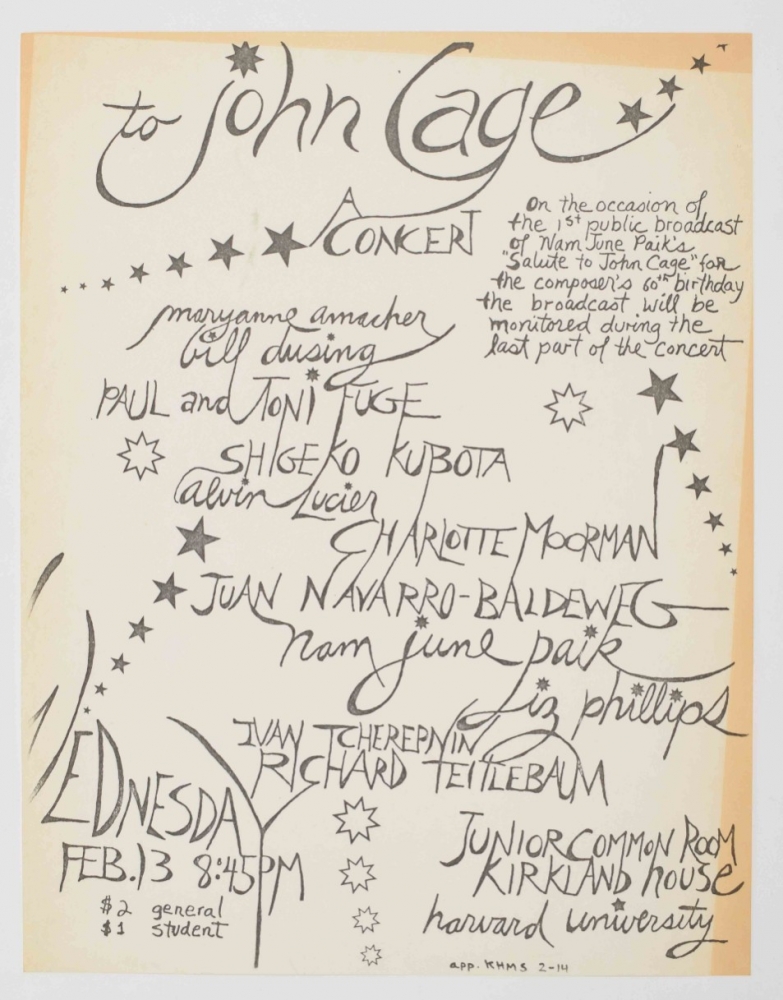 to John Cage
A
CONCERT
On the occasion of
the 1st public broadcast
of Nam June Paik's
"Salute to John Cage" for
the composer's 60th birthday
the broadcast will be
monitored during the
last part of the concert
maryanne amacher
bill dusing
PAUL and TONI FUGE
SHIGEKO KUBOTA
alvin Lucier
CHARLOTTE MOORMAN
JUAN NAVARRO-BALDEWEG
nam june paik
liz phillips
IVAN TCHEREPNIN
RICHARD TEITLEBAUM
WEDNESDAY
FEB.13 8:45PM
$2 general
$1 student
JUNIOR COMMON ROOM
KIRKLAND house
harvard university
app. KHMS 2-14